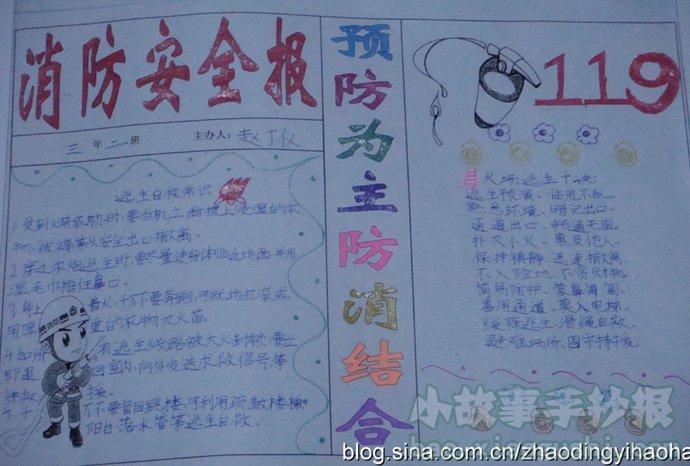 消防安全报
三年二班 主办人：赵丁仪
逃生自救常识
1.受到火势威胁时,要当机立断披上浸湿的衣
物、被褥等从安全出口撤离。
2.穿过浓烟逃生时,要尽量使身体贴近地面,并用
湿毛巾捂住鼻口。
3.身上着火,千万不要奔跑,可就地打滚或
用厚重的衣物灭火苗。
有逃生线路被大火封锁,要立
即退回室内,向外发送求救信号,等
待救援。
万不要盲目跳楼,可利用疏散楼梯
阳台落水管等逃生自救。
预防为主防消结合
119
火场逃生十诀:
逃生预演、临危不乱
熟悉环境、暗记出口
通道出口、畅通无阻
扑灭小火、惠及他人
保持镇静、迅速撤离
不入险地、不贪财物
简易防护、蒙鼻匍匐
善用通道、莫入电梯
缓降逃生、滑绳自救
避难场所、固守待援
小故事手抄报
blog.sina.com.cn/zhaodingyihaoha